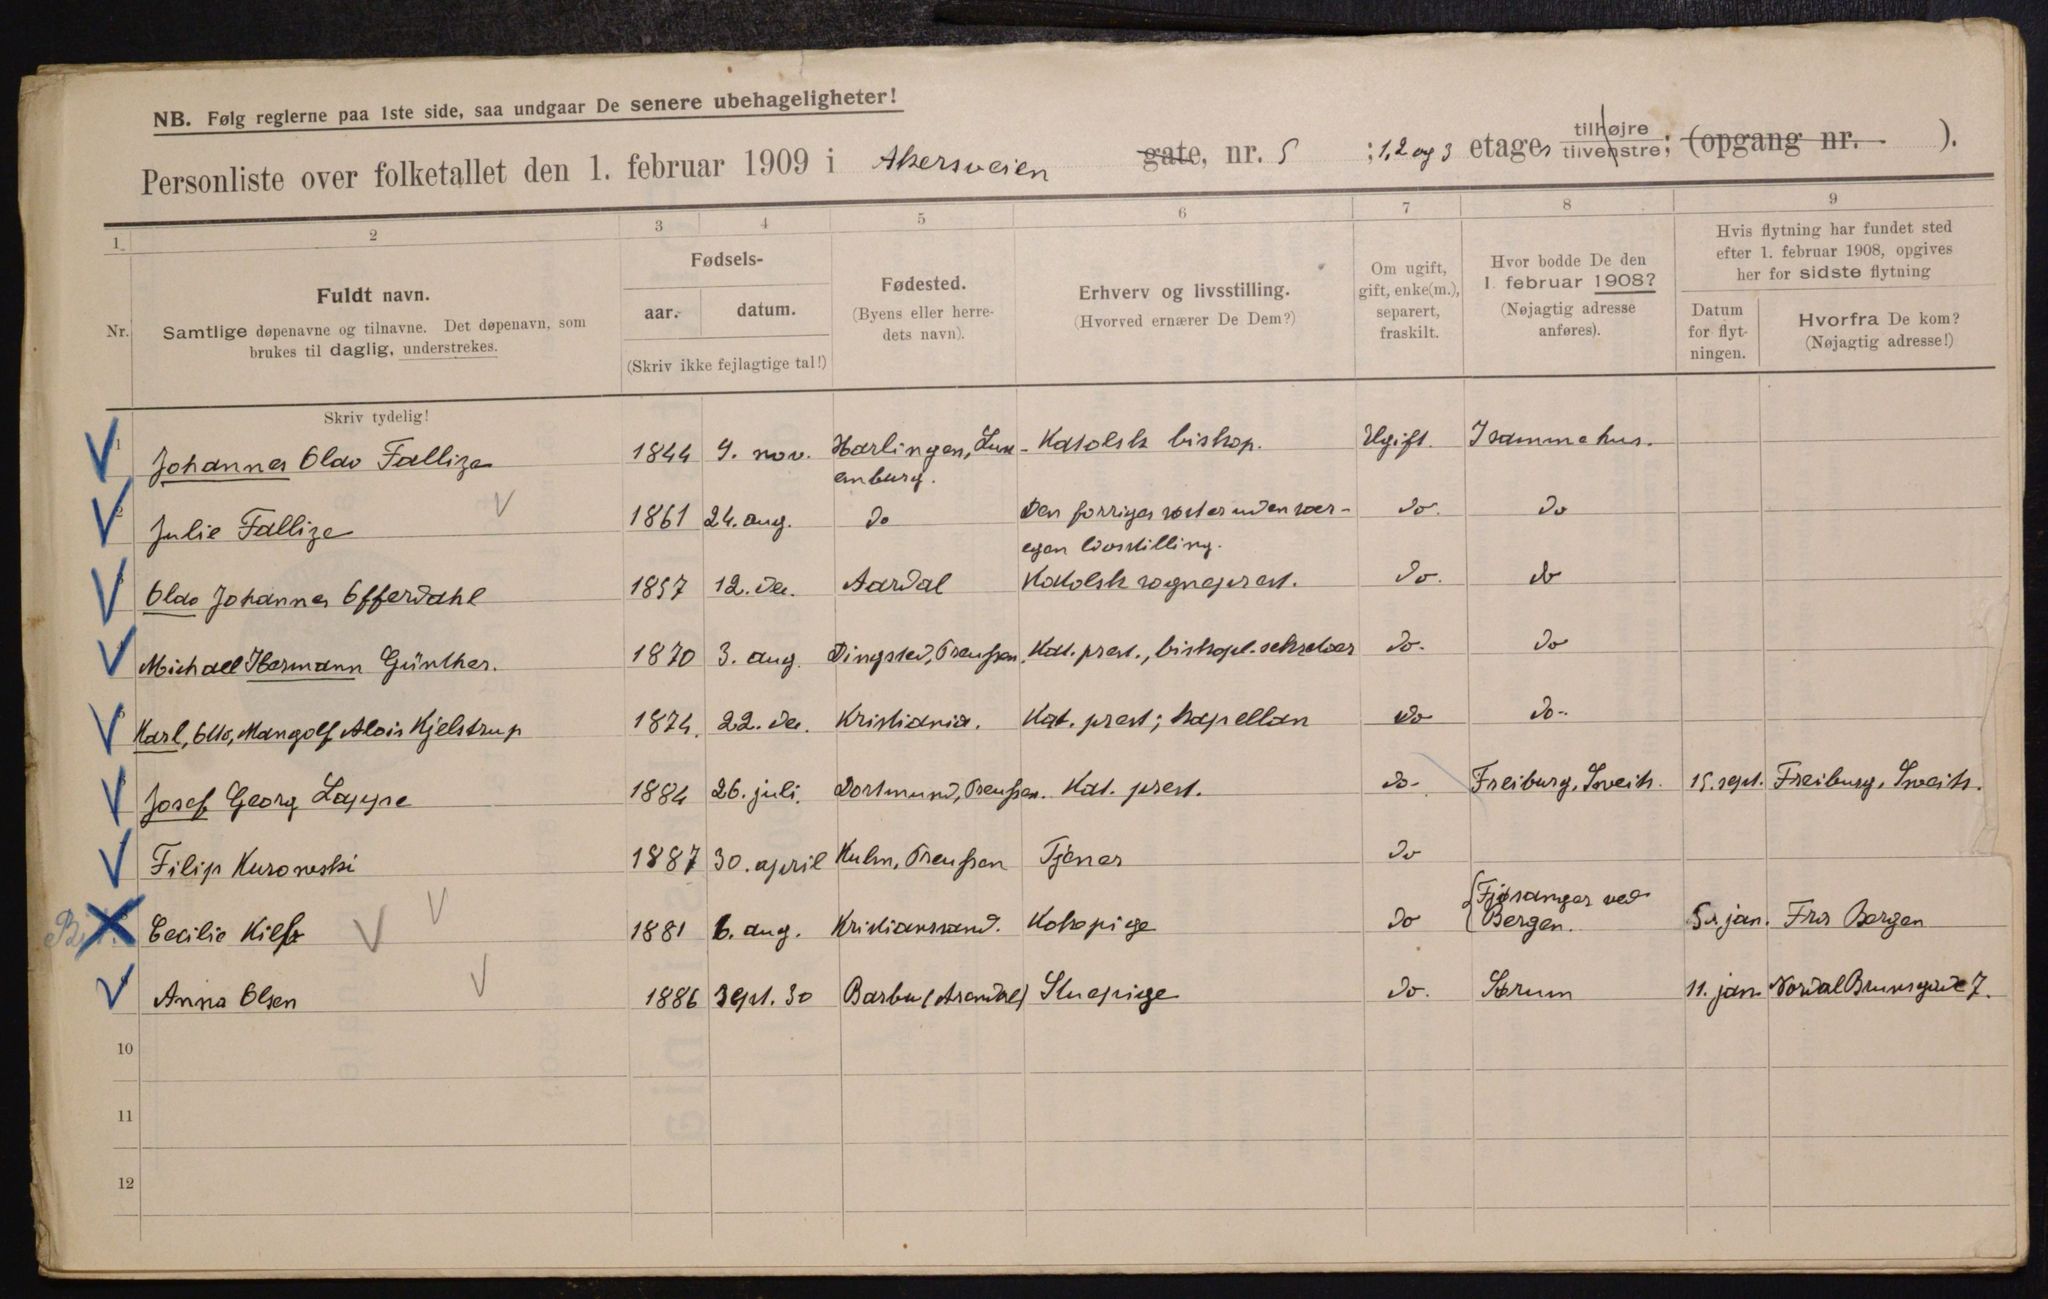 NB. Følg reglerne paa 1ste side, saa undgaar De senere ubehageligheter!
Personliste over folketallet den 1. februar 1909 i Akersveien gate, nr. 5 ; 1, 2 og 3 etages tilhøjre tilvenstre; (opgang nr. ).
1 2 3 4 5 6 7 8 9
Nr.
Fuldt navn.
Samtlige døpenavne og tilnavne. Det døpenavn, som
brukes til daglig, understrekes.
Skriv tydelig!
Fødsels-
aar. datum.
(Skriv ikke fejlagtige tal!)
Fødested.
(Byens eller herre-
dets navn).
Erhverv og livsstilling.
(Hvorved ernærer De Dem?)
Om ugift,
gift, enke(m.),
separert,
fraskilt.
Hvor bodde De den
1. februar 1908?
(Nøjagtig adresse
anføres).
Hvis flytning har fundet sted
efter 1. februar 1908, opgives
her for sidste flytning
Datum
for flyt-
ningen.
Hvorfra De kom?
(Nøjagtig adresse!)
1 Johannes Olav Fallize 1844 9. nov. Harlingen, Lux- Katolsk biskop. Ugift. I samme hus.
emburg.
2 Julie Fallize 1861 24. aug. do Den forriges søster uden sær- do. do
egen livsstilling.
3 Olav Johannes Offerdahl 1857 12. de. Aardal Katolsk sogneprest. do. do
4 Michael Hermann Günther. 1870 3. aug. Dingsted, Preussen. Kat. prest., biskopl. sekretær do. do
5 Karl, Otto, Mangolf Alois Kjelstrup 1874. 22. de. Kristiania. Kat. prest; kapellan do do.
6 Josef Georg Lappe 1884 26. juli. Dortmund, Preussen. Kat. prest. do. Freiburg, Sveits. 15. sept. Freiburg, Sveits.
Filip Kurowski 1887 30. april Kulm, Preussen Tjener do
Cecilie 1881 6. aug. Kristianssand. Kokepige do Fjøsanger ved
Bergen. 5. jan. Fra Bergen
Anna Olsen 1886 sept. 30 Barbu (Arendal) Stuepige do. Sørum 11. jan. Nordal Brunsgade 7.
10
11
12